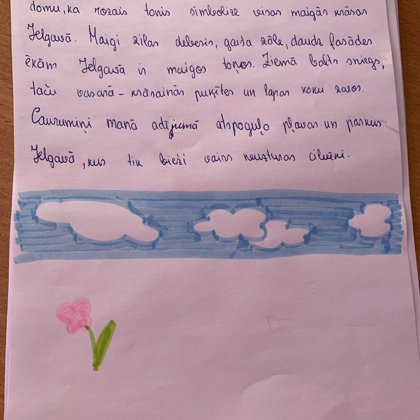 domu, ka rozais tonis simbolizē visas maigās krāsas
Jelgavā. Maigi zilas debesis, gaiša zāle, daudz fasādes
ēkām Jelgavā ir maigos toņos. Ziemā balts sniegs,
taču vasarā - krāsainās puķītes un lapas koku zaros.
Caurumiņi manā adījumā atspoguļo pļavas un parkus
Jelgavā, kus tik bieži vairs neuzturas cilvēki.